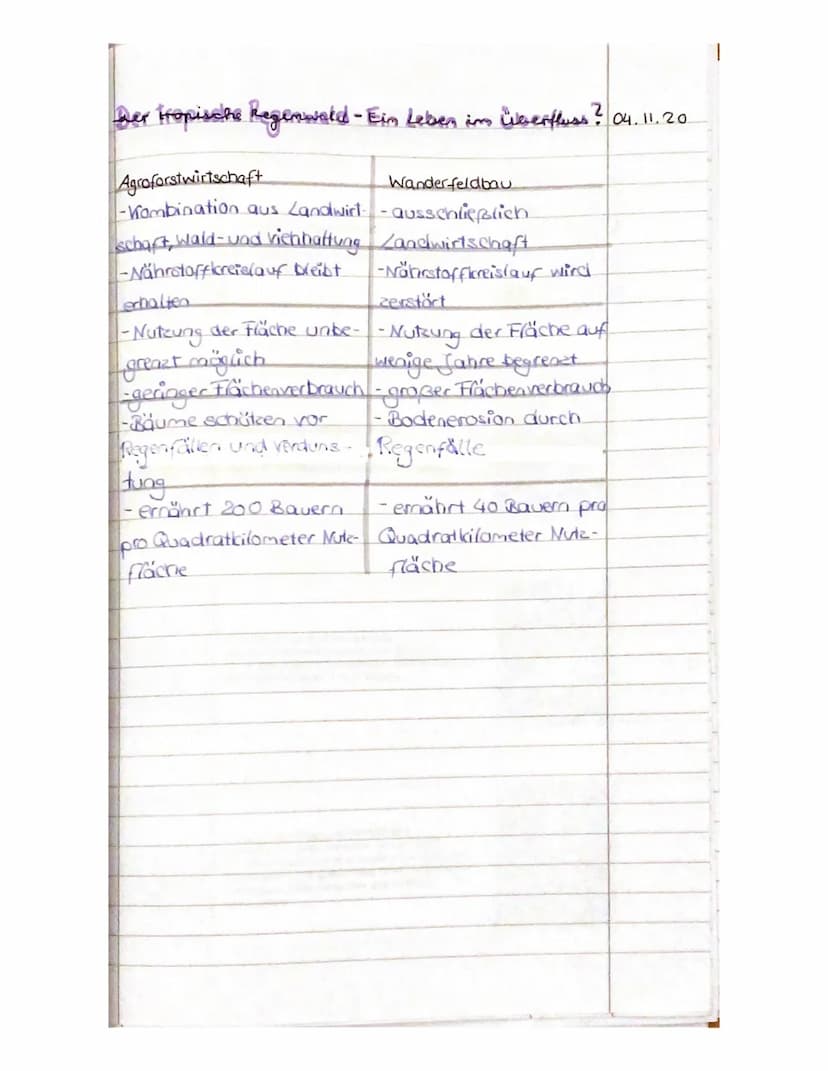 Der tropische Regenwald - Ein Leben im Überfluss? 04.11.20
Agroforstwirtschaft
-Kombination aus Landwirt-
schaft, Wald- und Viehhaltung
-Nährstoffkreislauf bleibt
erhalten
-Nutzung der Fläche unbe-
grenzt möglich
-geringer Flächenverbrauch
-Bäume schützen vor
Regenfällen und Verduns-
tung
-ernährt 200 Bauern
pro Quadratkilometer Nutz-
fläche
Wanderfeldbau
-ausschließlich
Landwirtschaft
-Nährstoffkreislauf wird
zerstört
-Nutzung der Fläche auf
wenige Jahre begrenzt
-großer Flächenverbrauch
-Bodenerosion durch
Regenfälle
-ernährt 40 Bauern pro
Quadratkilometer Nutz-
fläche